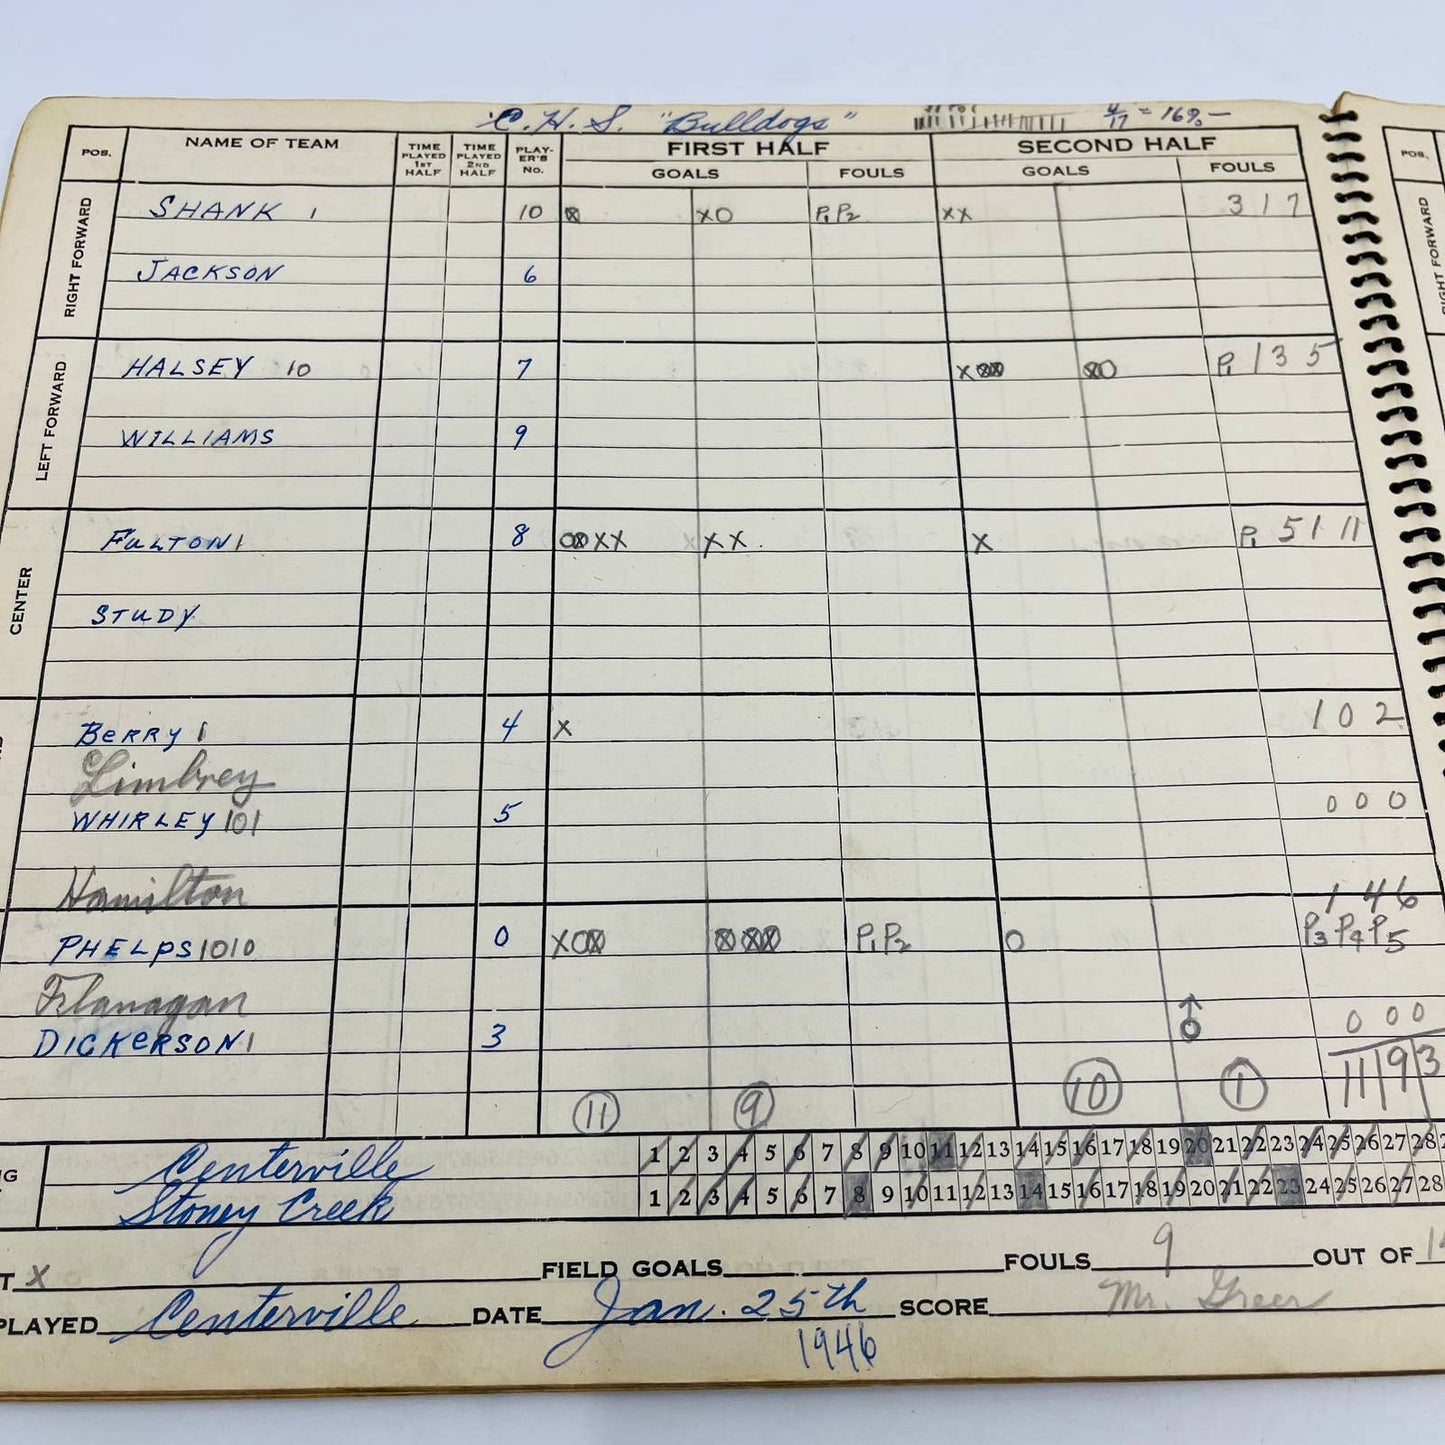 C. H. S. "Bulldogs" 4/17 = 16% —
POS. NAME OF TEAM TIME PLAYED 1ST HALF TIME PLAYED 2ND HALF PLAY-ER'S NO. FIRST HALF SECOND HALF POS.
GOALS FOULS GOALS FOULS
RIGHT FORWARD SHANK 1 10 XO P1 P2 XX 3 1 7
JACKSON 6
LEFT FORWARD HALSEY 10 7 P1 1 3 5
WILLIAMS 9
CENTER FULTON 1 8 XX XX X P1 5 1 11
STUDY
BERRY 1 4 X 1 0 2
Limbrey
WHIRLEY 101 5 0 0 0
Hamilton 1 4 6
PHELPS 1010 0 P1 P2 O P3 P4 P5
Flanagan
DICKERSON 1 3 0 0 0
11 9 10 1 11 9 3
Centerville 1 2 3 4 5 6 7 8 9 10 11 12 13 14 15 16 17 18 19 20 21 22 23 24 25 26 27 28
Stoney Creek 1 2 3 4 5 6 7 8 9 10 11 12 13 14 15 16 17 18 19 20 21 22 23 24 25 26 27 28
X FIELD GOALS FOULS 9 OUT OF
PLAYED Centerville DATE Jan. 25th SCORE Mr. Greer
1946